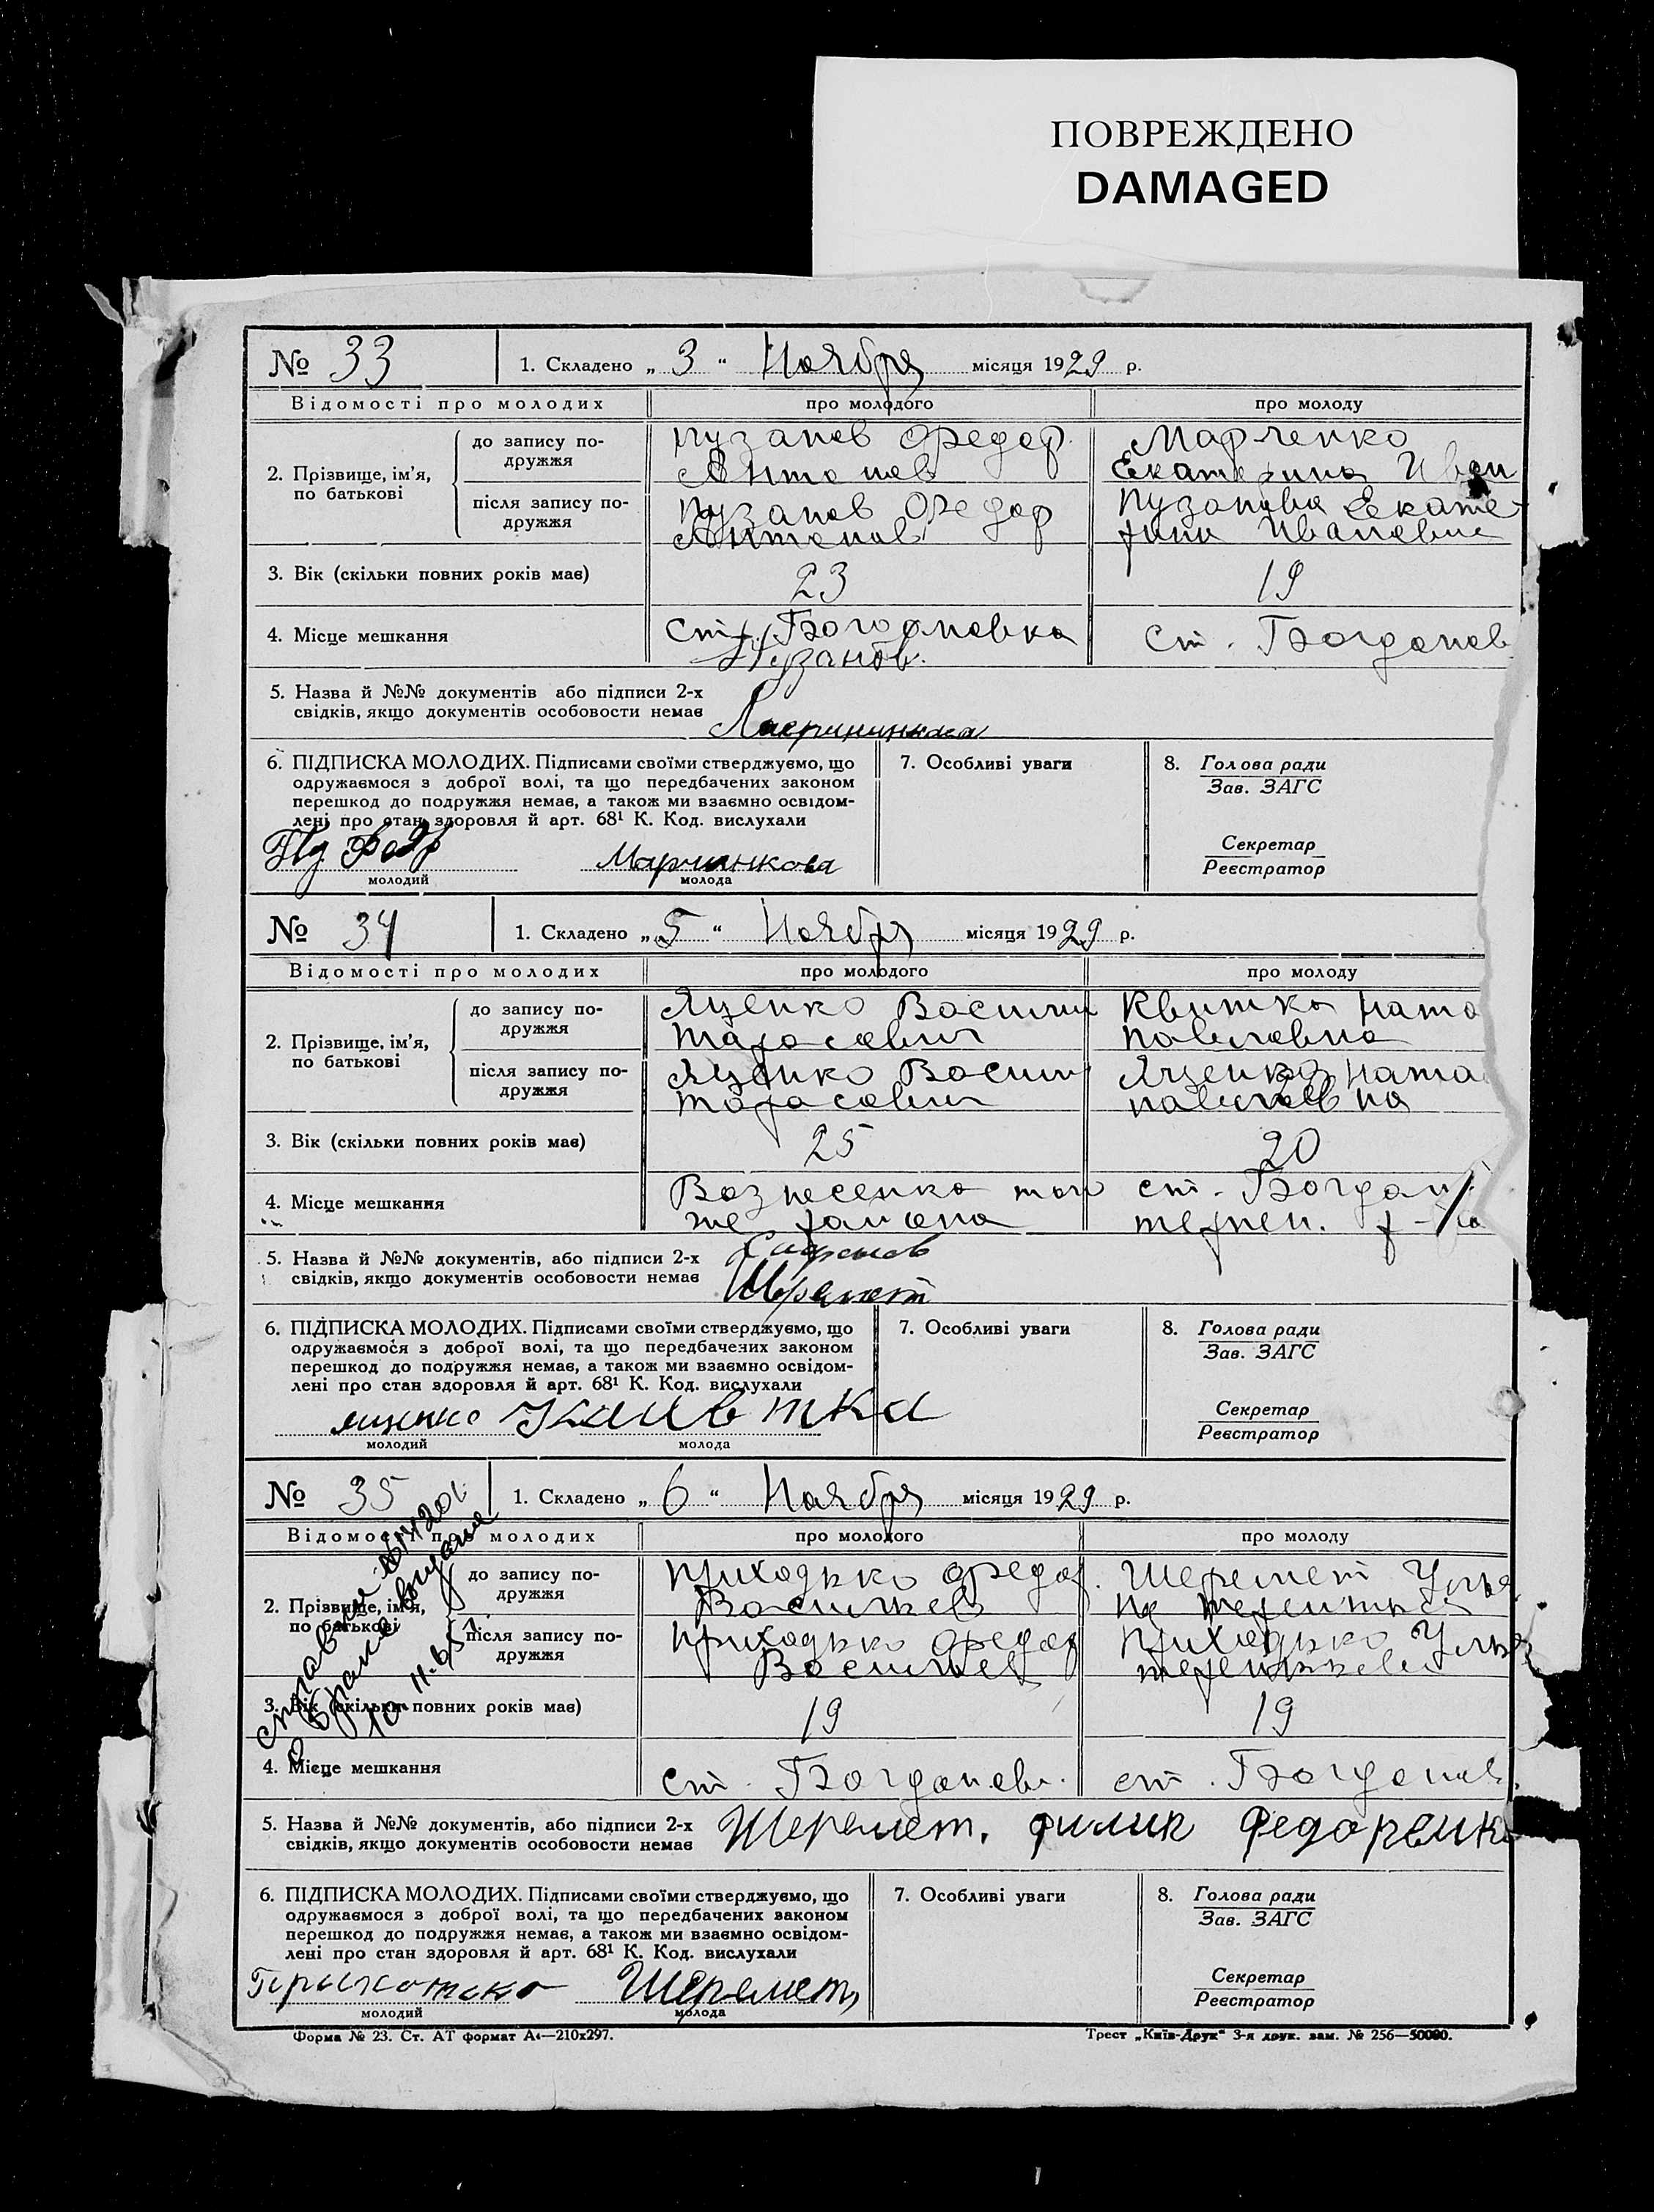 ПОВРЕЖДЕНО
DAMAGED
№ 33 1. Складено „ 3 “ Ноября місяця 1929 р.
Відомості про молодих про молодого про молоду
2. Прізвище, ім’я, по батькові
до запису подружжя
Пузанов Федор
Антонов
Марченко
Екатерина Иван
після запису подружжя
Пузанов Федор
Антонов
Пузанова Екате-
рина Ивановна
3. Вік (скільки повних років має) 23 19
4. Місце мешкання ст. Богдановка ст. Богданов
Пузанов.
5. Назва й №№ документів або підписи 2-х
свідків, якщо документів особовости немає
6. ПІДПИСКА МОЛОДИХ. Підписами своїми стверджуємо, що
одружаємося з доброї волі, та що передбачених законом
перешкод до подружжя немає, а також ми взаємно освідом-
лені про стан здоровля й арт. 68¹ К. Код. вислухали
молодий молода
7. Особливі уваги
8. Голова ради
Зав. ЗАГС
Секретар
Реєстратор
№ 34 1. Складено „ 5 “ Ноября місяця 1929 р.
Відомості про молодих про молодого про молоду
2. Прізвище, ім’я, по батькові
до запису подружжя
Яценко Васили
Тарасович
Квитка Ната
Павловна
після запису подружжя
Яценко Васили
Тарасович
Яценко Ната
Павловна
3. Вік (скільки повних років має) 25 20
4. Місце мешкання
Вознесенка того
же района
ст. Богдан
5. Назва й №№ документів, або підписи 2-х
свідків, якщо документів особовости немає
Шеремет
6. ПІДПИСКА МОЛОДИХ. Підписами своїми стверджуємо, що
одружаємося з доброї волі, та що передбачених законом
перешкод до подружжя немає, а також ми взаємно освідом-
лені про стан здоровля й арт. 68¹ К. Код. вислухали
яценко
молодий молода
7. Особливі уваги
8. Голова ради
Зав. ЗАГС
Секретар
Реєстратор
№ 35 1. Складено „ 6 “ Ноября місяця 1929 р.
Відомості про молодих про молодого про молоду
2. Прізвище, ім’я, по батькові
до запису подружжя
Приходько Федор.
Васильев
Шеремет Улья
на Терентьев
після запису подружжя
Приходько Федор
Васильев
Приходько Улья
Терентьев
3. Вік (скільки повних років має) 19 19
4. Місце мешкання ст. Богданов. ст. Богданов.
5. Назва й №№ документів, або підписи 2-х
свідків, якщо документів особовости немає
Шеремет. Филип Федоренко
6. ПІДПИСКА МОЛОДИХ. Підписами своїми стверджуємо, що
одружаємося з доброї волі, та що передбачених законом
перешкод до подружжя немає, а також ми взаємно освідом-
лені про стан здоровля й арт. 68¹ К. Код. вислухали
Шеремет
молодий молода
7. Особливі уваги
8. Голова ради
Зав. ЗАГС
Секретар
Реєстратор
Форма № 23. Ст. АТ формат А4—210х297.
Трест „Київ-Друк“ 3-я друк. зам. № 256—50000.